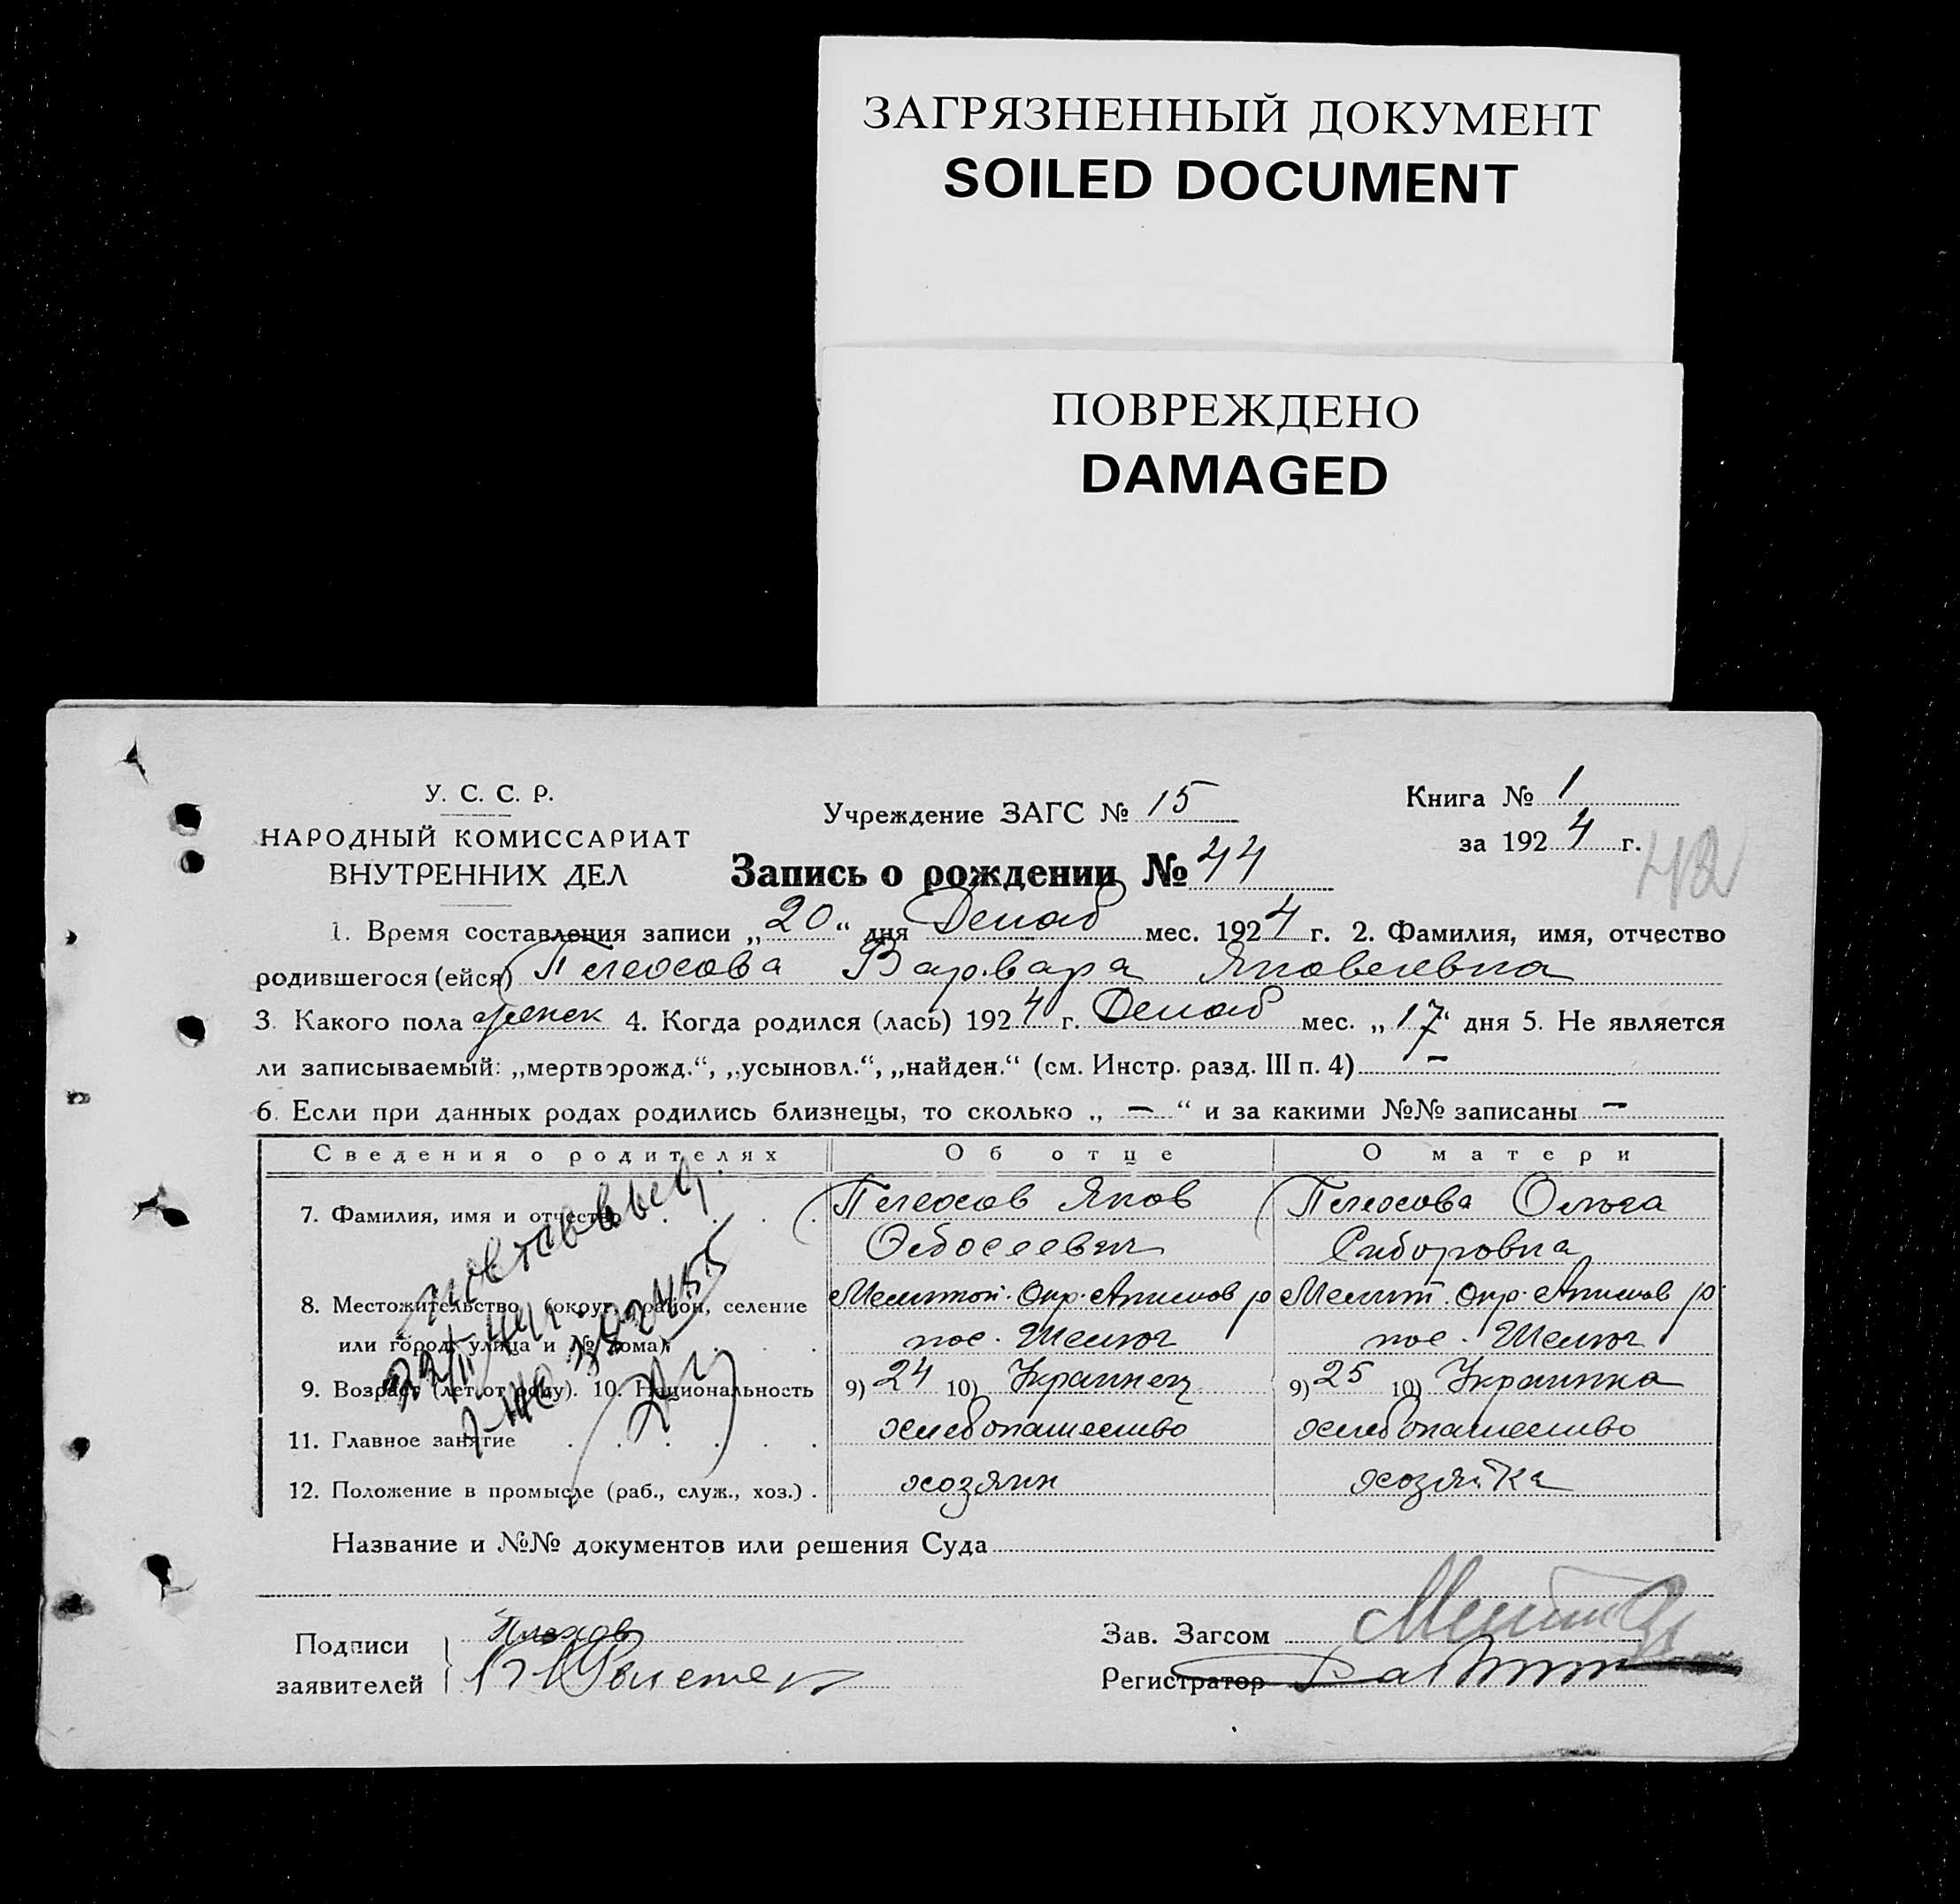 ЗАГРЯЗНЕННЫЙ ДОКУМЕНТ
SOILED DOCUMENT
ПОВРЕЖДЕНО
DAMAGED
У. С. С. Р.
НАРОДНЫЙ КОМИССАРИАТ
ВНУТРЕННИХ ДЕЛ
Учреждение ЗАГС № 15
Книга № 1
за 1924 г.
42
Запись о рождении № 44
1. Время составления записи „20“ дня Декаб мес. 1924 г. 2. Фамилия, имя, отчество
родившегося (ейся) Варвара Яковлевна
3. Какого пола женск 4. Когда родился (лась) 1924 г. Декаб мес. „17“ дня 5. Не является
ли записываемый: „мертворожд.“, „усыновл.“, „найден.“ (см. Инстр. разд. III п. 4) —
6. Если при данных родах родились близнецы, то сколько „ — “ и за какими №№ записаны —
Сведения о родителях Об отце О матери
7. Фамилия, имя и отчество Яков Ольга
Сидоровна
8. Местожительство (округ, район, селение Мелитоп. Окр. Акимов р Мелит. Окр. Акимов р
или город, улица и № дома) пос. пос.
9. Возраст (лет от роду). 10. Национальность 9) 24 10) Украинец 9) 25 10) Украинка
11. Главное занятие хлебопашество хлебопашество
12. Положение в промысле (раб., служ., хоз.) хозяин хозяйка
Название и №№ документов или решения Суда
Подписи
заявителей
Зав. Загсом
Регистратор